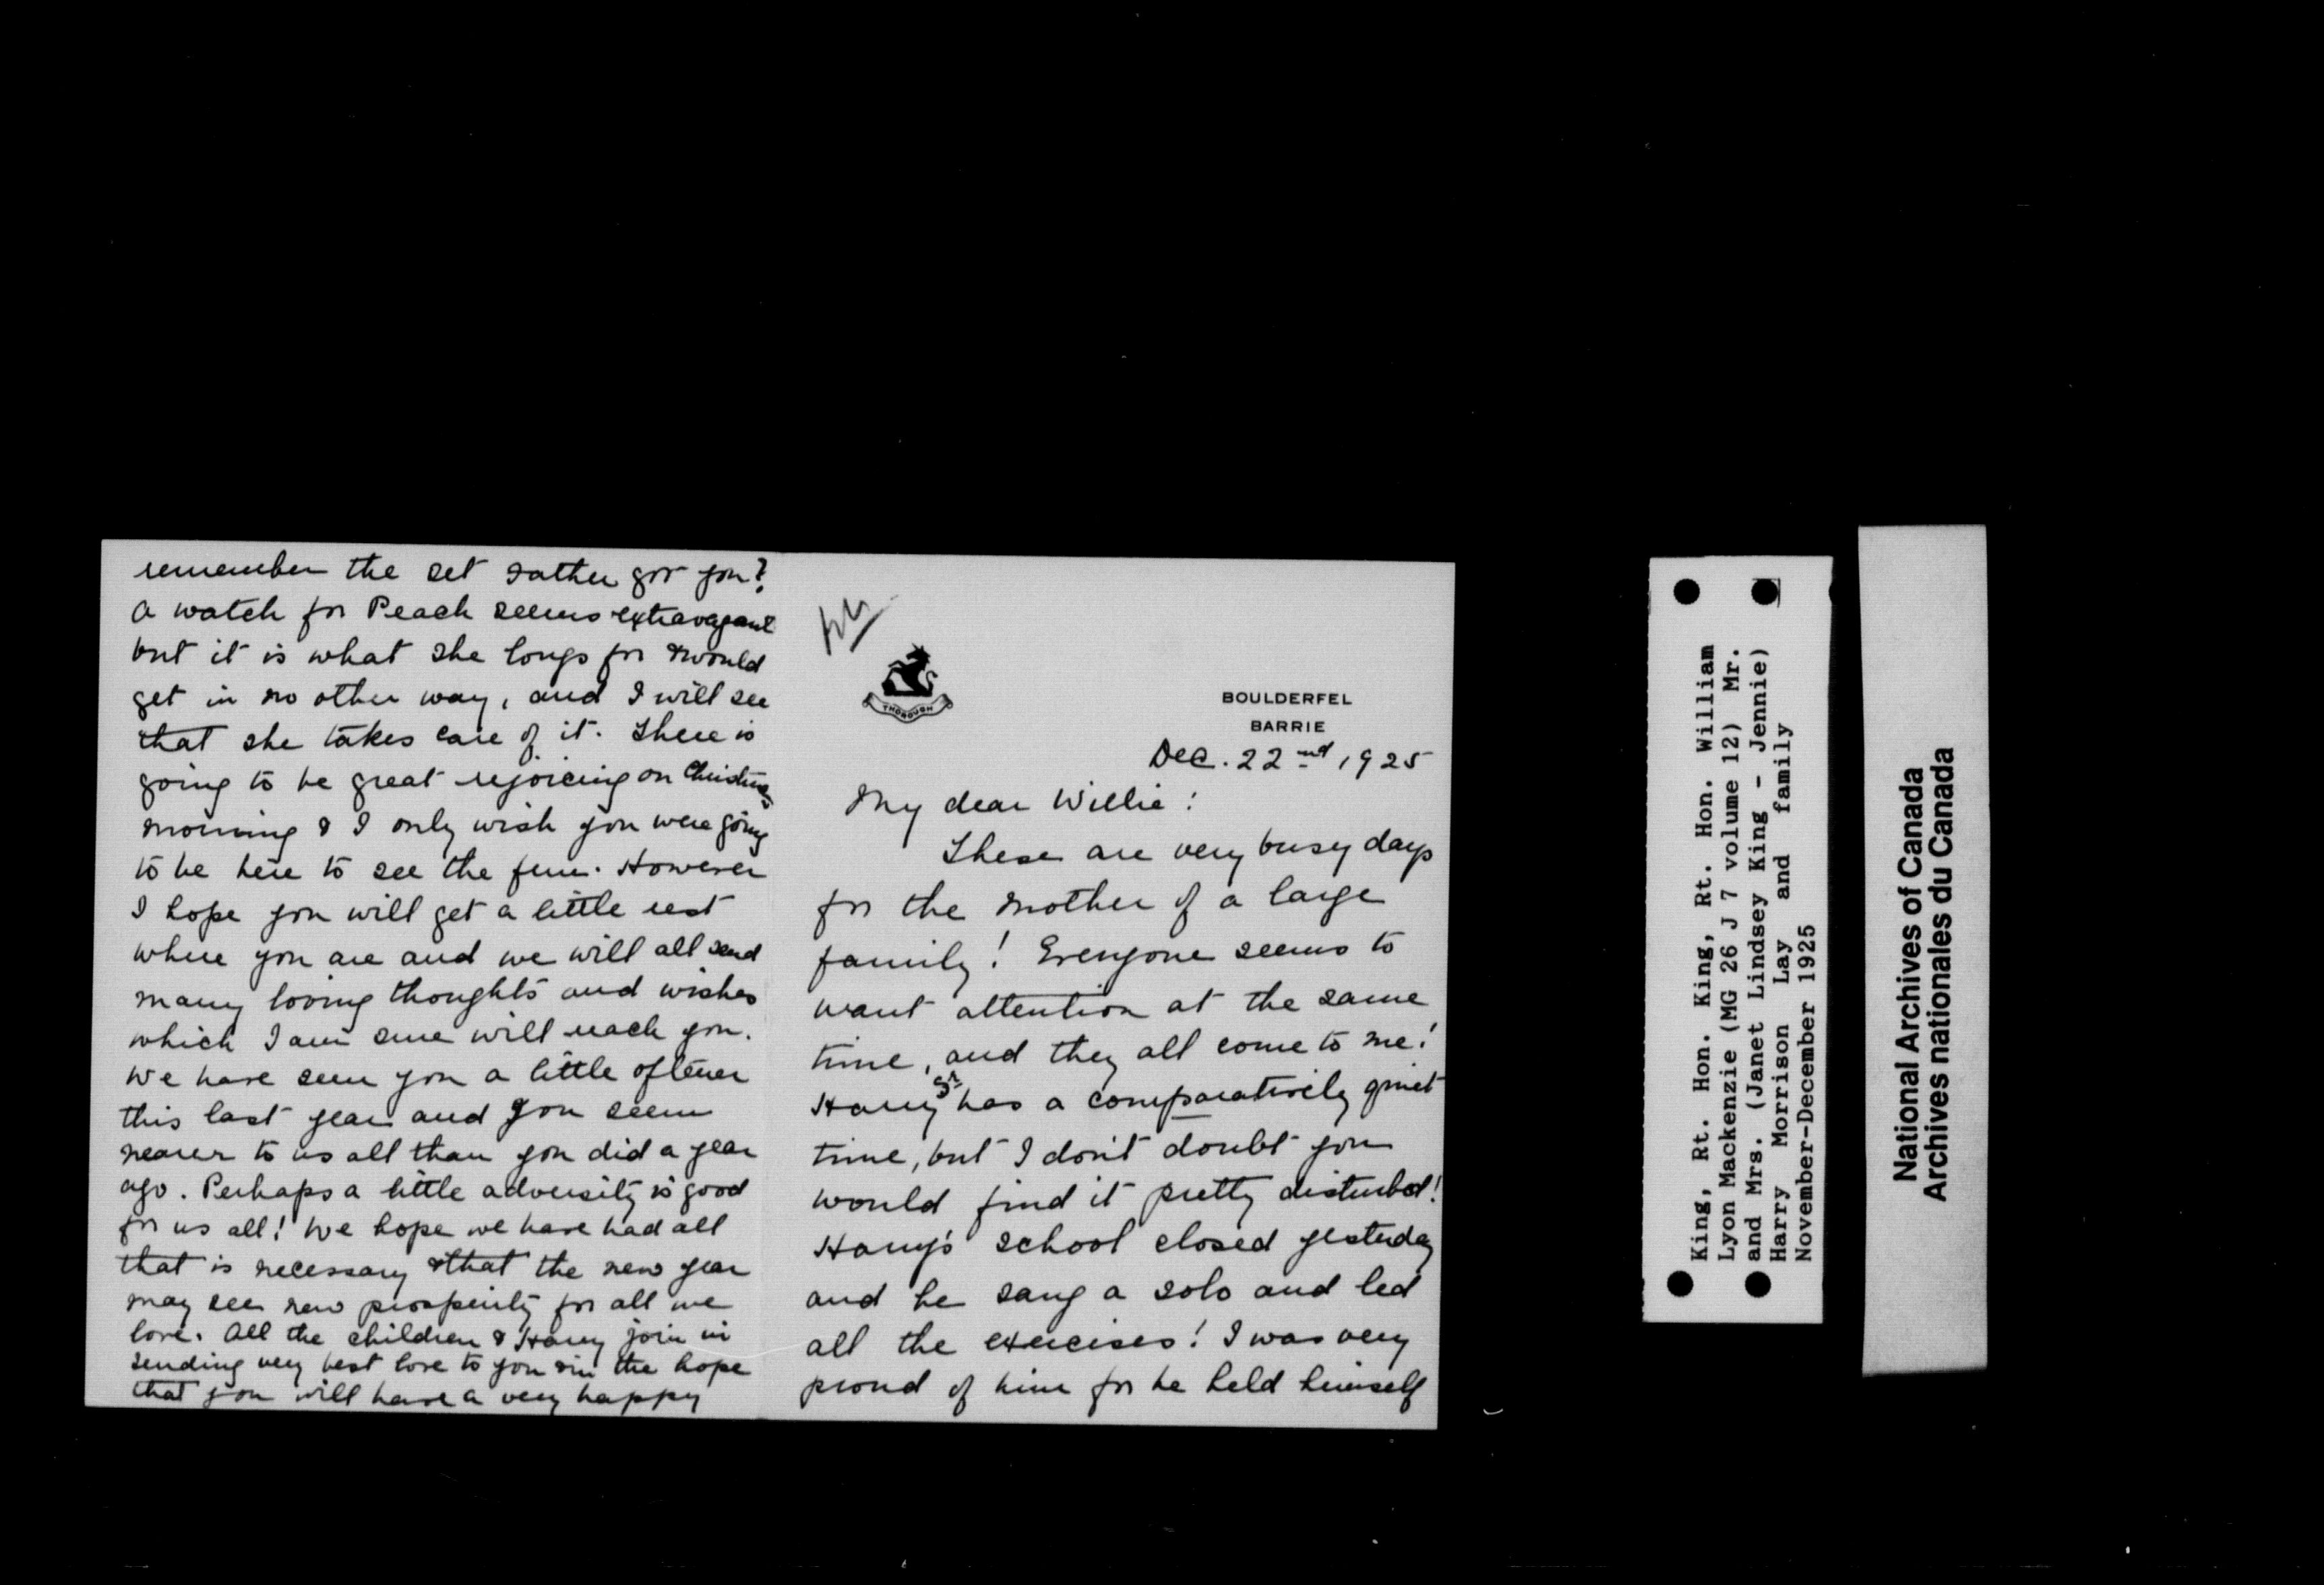 remember the set Father got you?
A watch for Peach seems extravagant
but it is what she longs for & would
get in no other way, and I will see
that she takes care of it. There is
going to be great rejoicing on Christmas
morning & I only wish you were going
to be here to see the fun. However
I hope you will get a little rest
where you are and we will all send
many loving thoughts and wishes
which I am sure will reach you.
We have seen you a little oftener
this last year and you seem
nearer to us all than you did a year
ago. Perhaps a little adversity is good
for us all! We hope we have had all
that is necessary & that the new year
may see new prosperity for all we
love. All the children & Harry join in
sending very best love to you & in the hope
that you will have a very happy
THOROUGH
BOULDERFEL
BARRIE
Dec. 22nd 1925
My dear Willie:
These are very busy days
for the mother of a large
family! Everyone seems to
want attention at the same
time, and they all come to me!
Harry Sr has a comparatively quiet
time, but I don't doubt you
would find it pretty disturbed!
Harry's school closed yesterday
and he sang a solo and led
all the exercises! I was very
proud of him for he held himself
King, Rt. Hon. King, Rt. Hon. William
Lyon Mackenzie (MG 26 J 7 volume 12) Mr.
and Mrs. (Janet Lindsey King - Jennie)
Harry Morrison Lay and family
November-December 1925
National Archives of Canada
Archives nationales du Canada